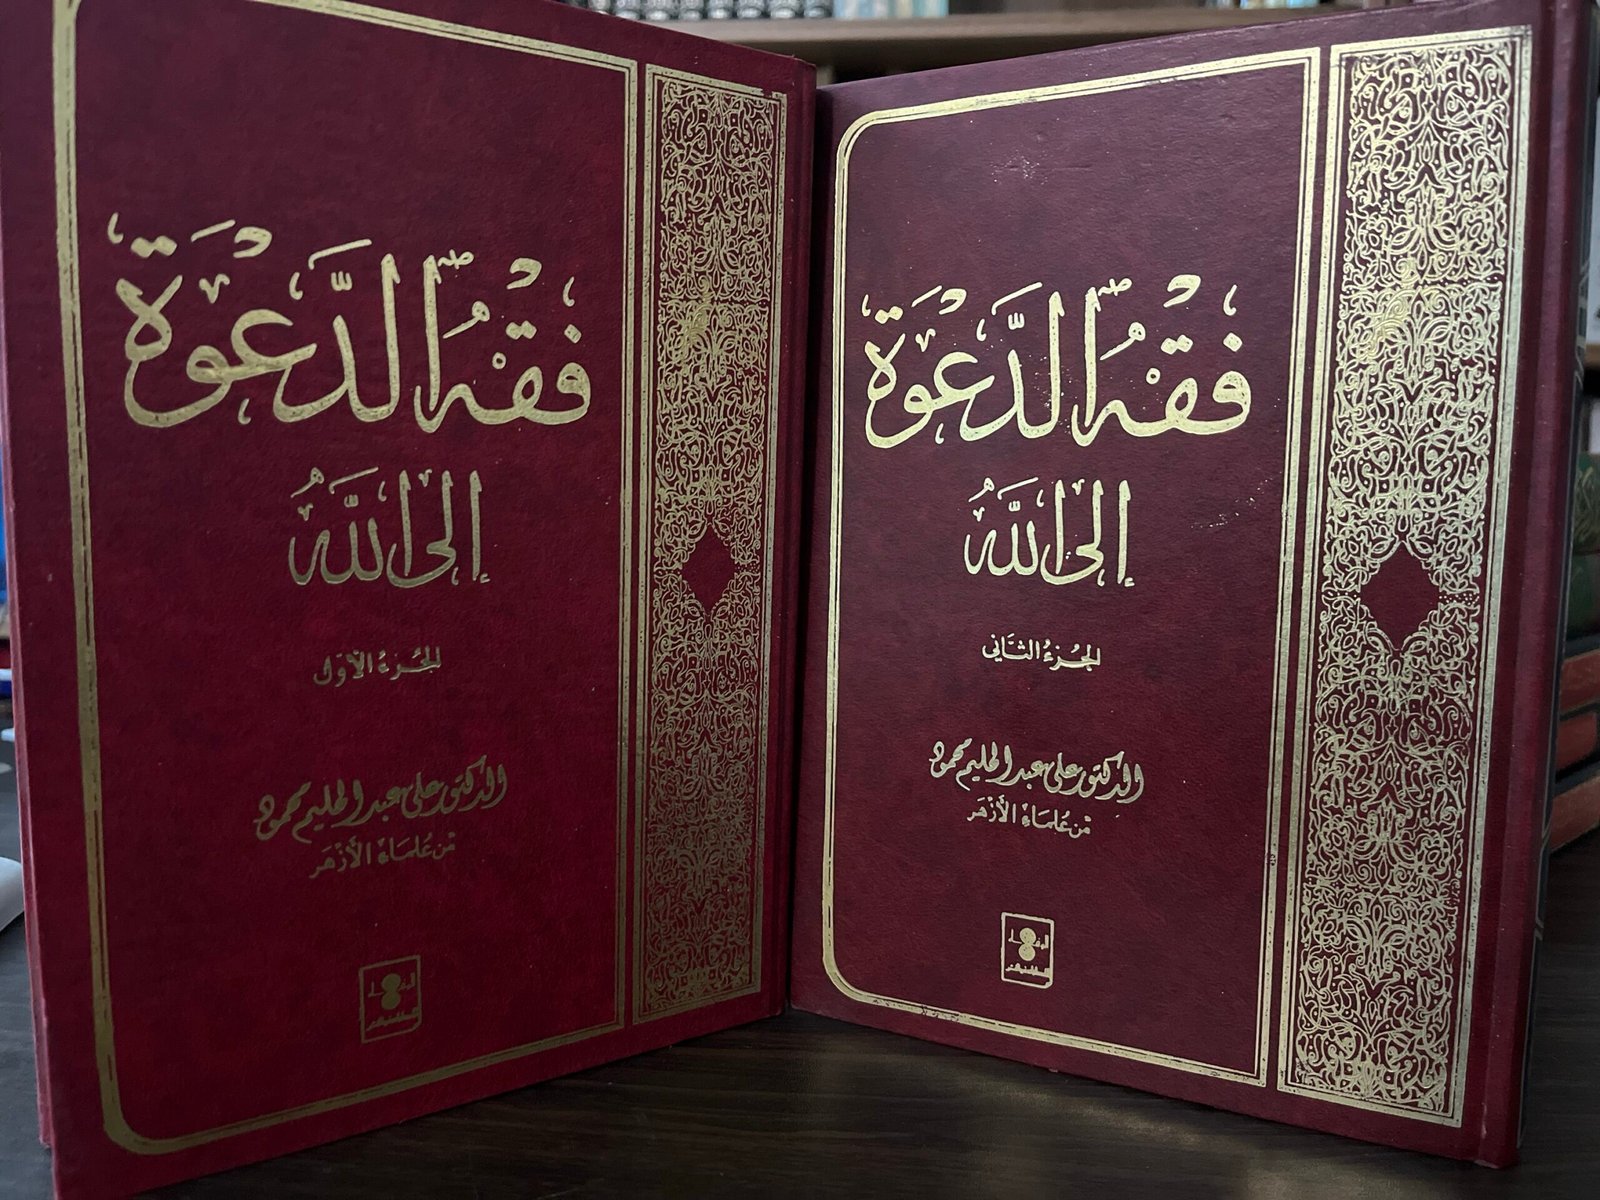 فِقْهُ الدَّعْوَةِ
إلى اللَّهِ
الجُزءُ الأوّل
الدكتور علي عبد الحليم محمود
مِن عُلمَاءِ الأَزهَر
فِقْهُ الدَّعْوَةِ
إلى اللَّهِ
الجُزءُ الثَّاني
الدكتور علي عبد الحليم محمود
مِن عُلمَاءِ الأَزهَر